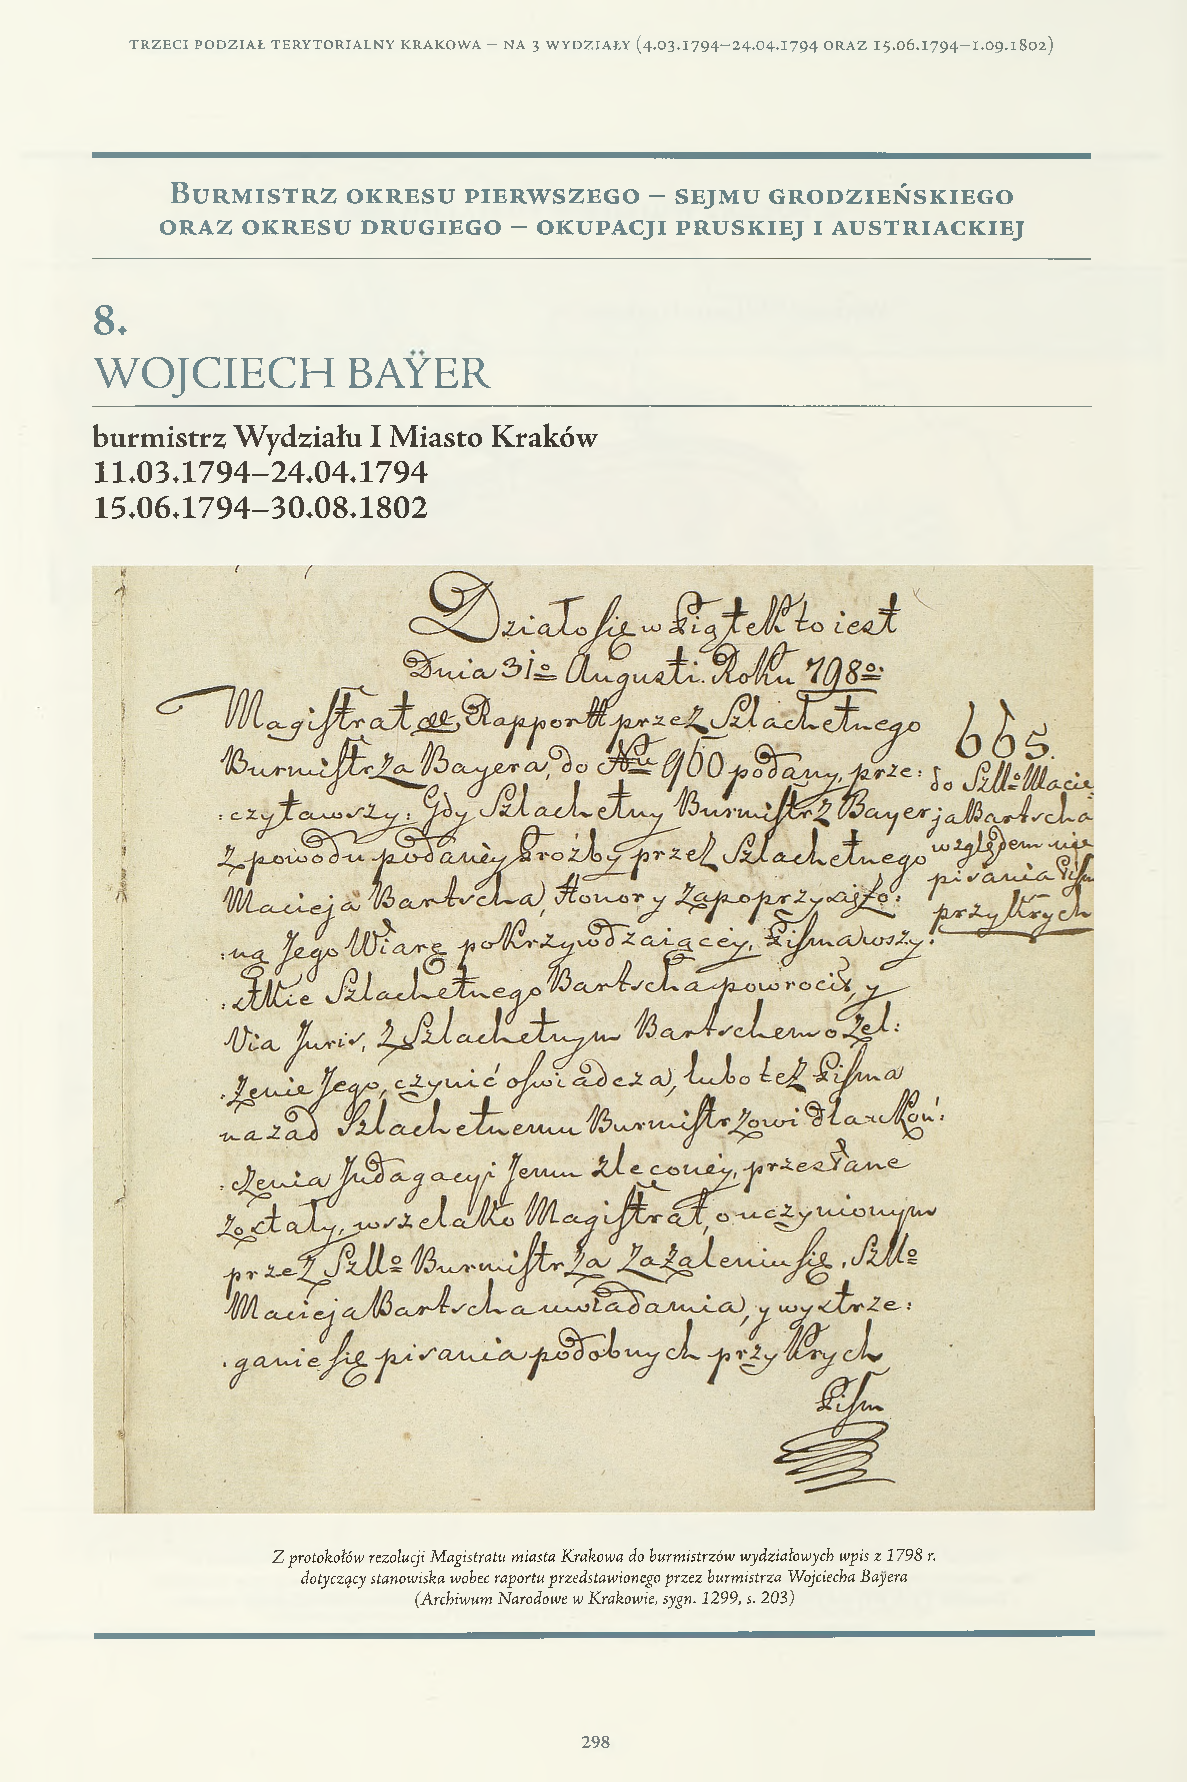 TRZECI PODZIAŁ TERYTORIALNY KRAKOWA – NA 3 WYDZIAŁY (4.03.1794–24.04.1794 ORAZ 15.06.1794–1.09.1802)
BURMISTRZ OKRESU PIERWSZEGO – SEJMU GRODZIEŃSKIEGO
ORAZ OKRESU DRUGIEGO – OKUPACJI PRUSKIEJ I AUSTRIACKIEJ
8.
WOJCIECH BAŸER
burmistrz Wydziału I Miasto Kraków
11.03.1794–24.04.1794
15.06.1794–30.08.1802
Działo się w Piątek to iest
Dnia 31o Augusti. Roku 798o.
Magistrat Rapportt przez Szlachetnego
Burmistrza Bayera, do Nu 960 podany, prze:
:czytawszy: Gdy Szlachetny Burmistrz Bayer
z powodu podaney Proźby przez Szlachetnego
Macieja Bartscha, Honor y zapoprzysięło:
:ną Jego Wiarę pokrzywdzaiącey, Pisma wszy:
:stkie Szlachetnego Bartscha powrocił, y
Via Juris, z Szlachetnym Bartschem o zel:
:zenie Jego, czynić oswiadcza, lubo też Pisma
nazad Szlachetnemu Burmistrzowi dla ukoń:
:czenia Indagacyi Jemu zleconey, przesłane
zostały, wszelako Magistrat, o uczynionym
przez Szllo Burmistrza Zażaleniu się, Szllo
Macieja Bartscha uwiadamia, y wystrze:
:ganie się pisania podobnych przykrych
Pism
665.
do Szllo Macie
ja Bartscha
względem nie
pisania Pism
przykrych
Z protokołów rezolucji Magistratu miasta Krakowa do burmistrzów wydziałowych wpis z 1798 r.
dotyczący stanowiska wobec raportu przedstawionego przez burmistrza Wojciecha Baÿera
(Archiwum Narodowe w Krakowie, sygn. 1299, s. 203)
298